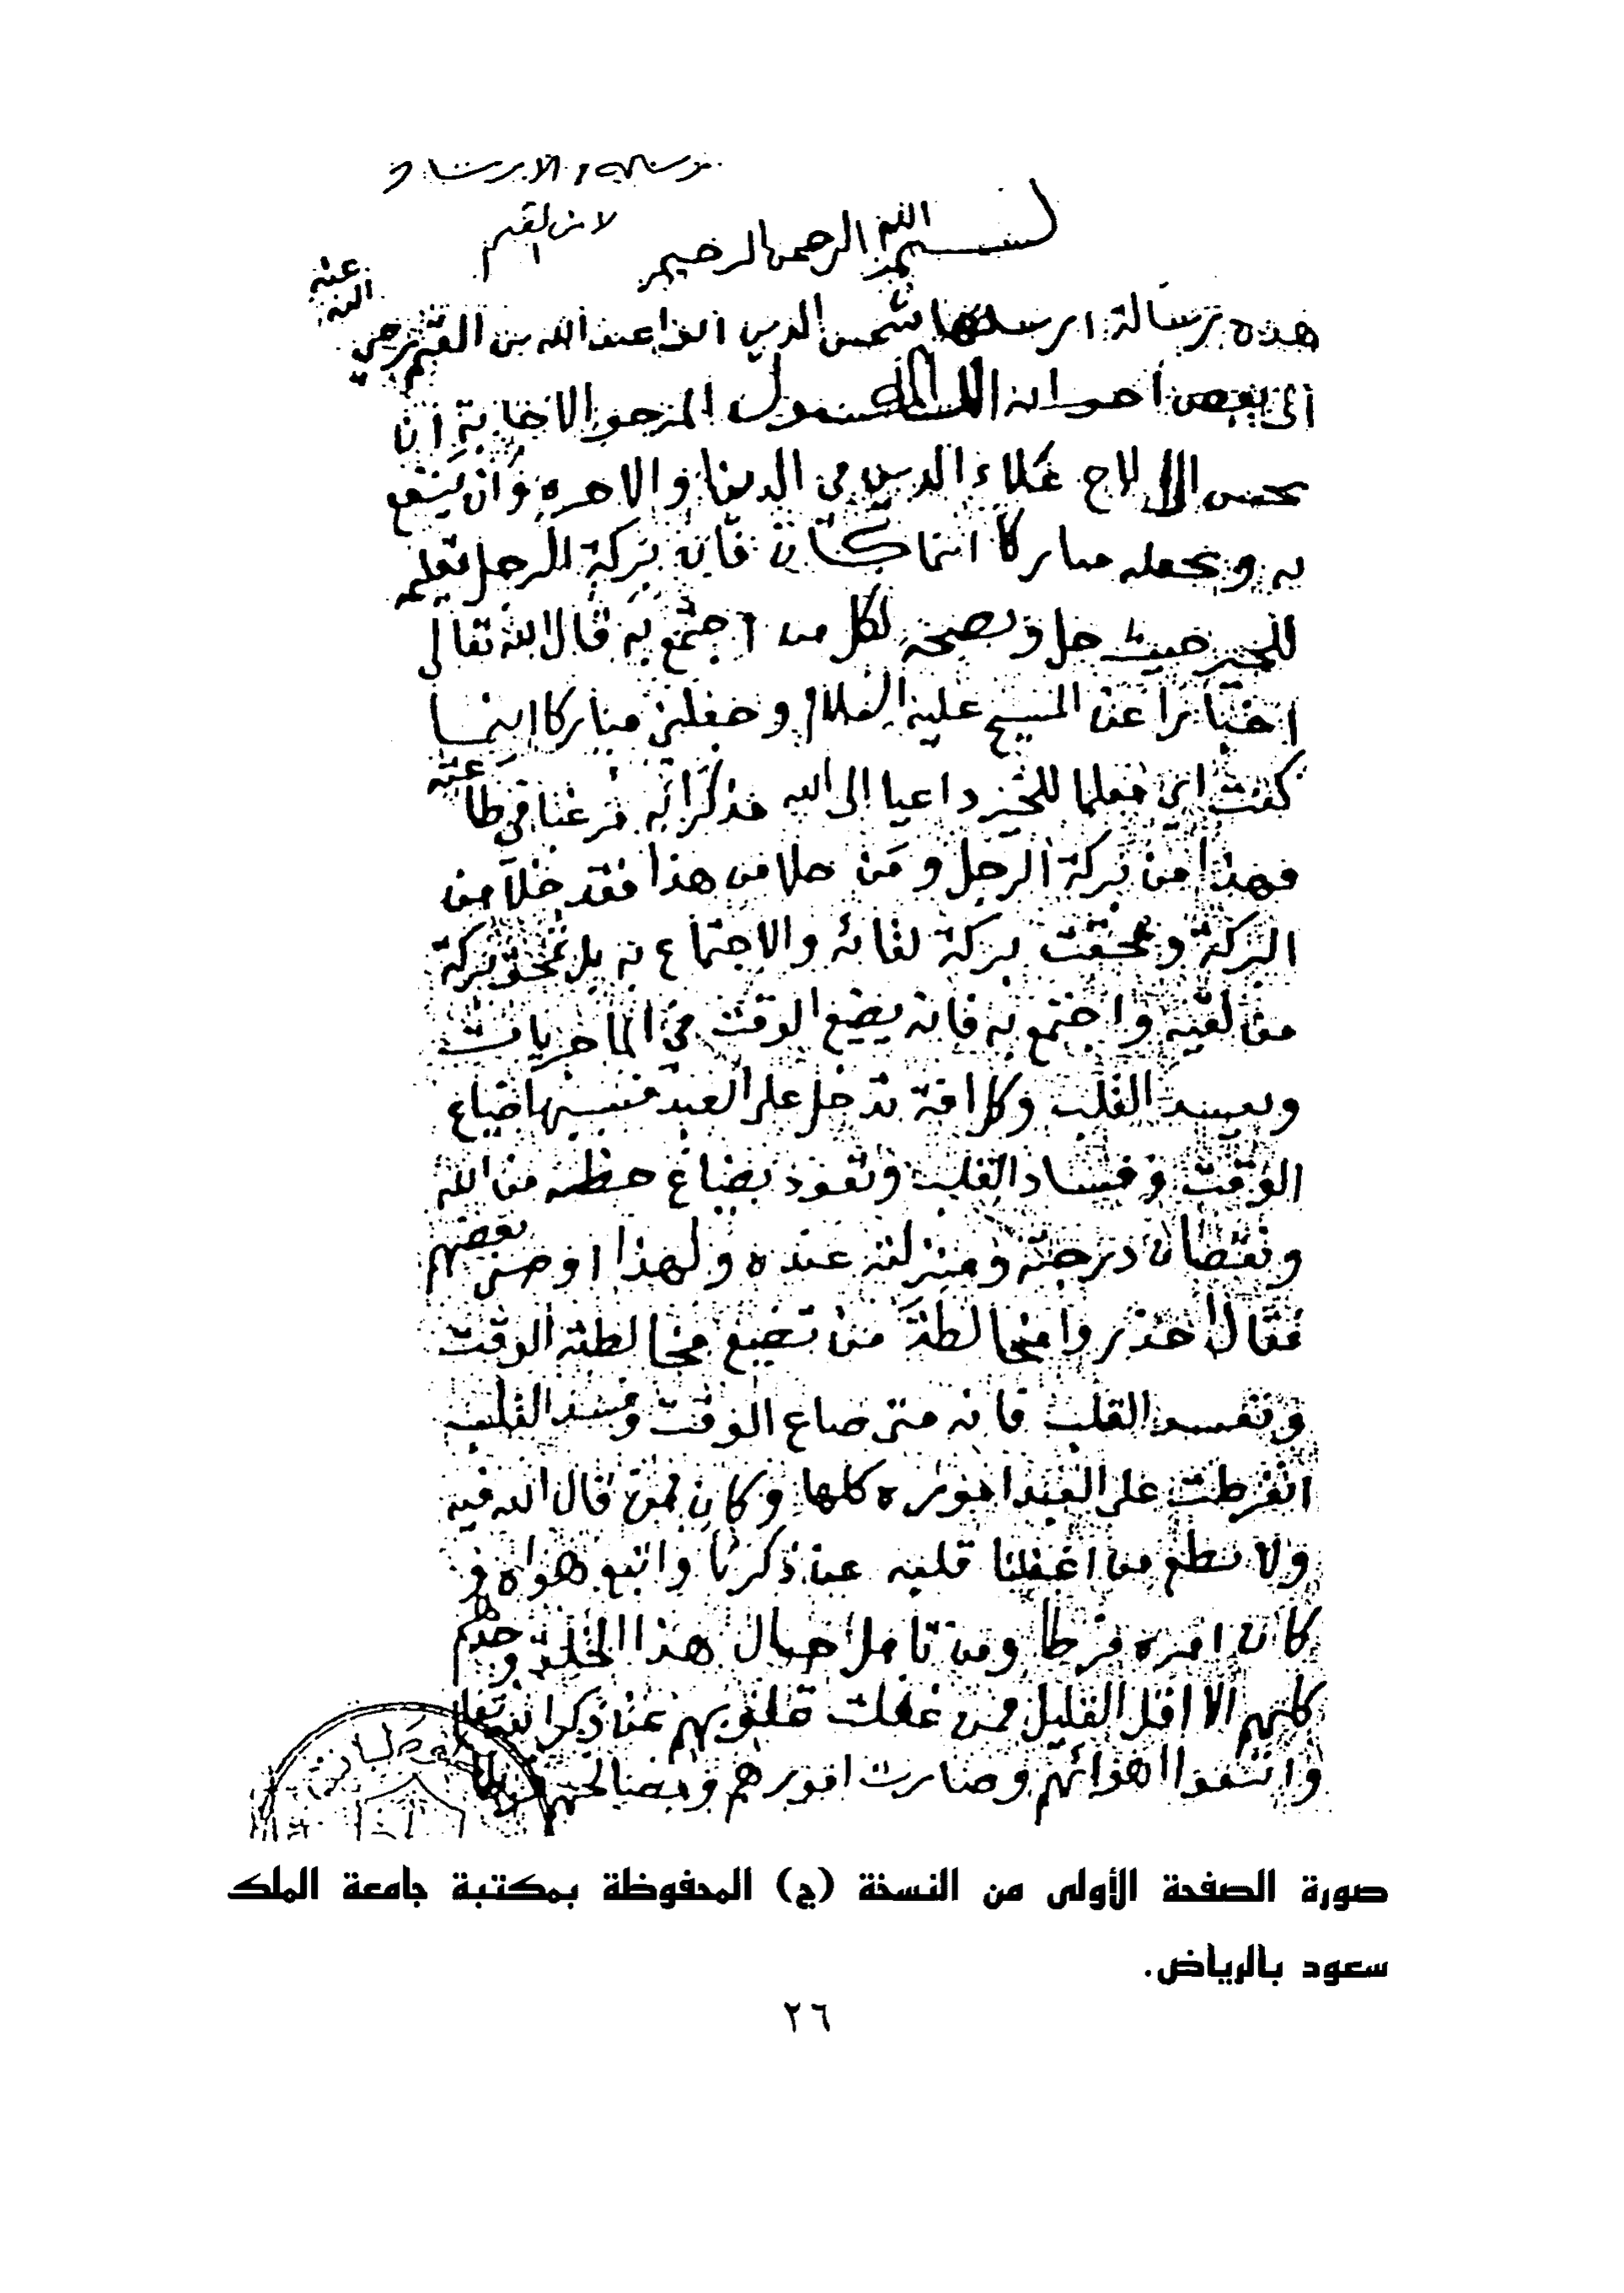 رسالة الارشاد
لابن القيم
بسم الله الرحمن الرحيم
هذه رسالة ارسلها شمس الدين ابو عبد الله بن القيم رضي
الله عنه
الى بعض اخوانه الله المسئول المرجو الاجابة ان
يحسن الى الاخ علاء الدين في الدنيا والاخره وان ينفع
به ويجعله مباركا اينما كان فان بركة الرجل تعليمه
للخير حيث حل ونصحه لكل من اجتمع به قال الله تعالى
اخبارا عن المسيح عليه السلام وجعلني مباركا اينما
كنت اي معلما للخير داعيا الى الله مذكرا به مرغبا في طاعته
فهذا من بركة الرجل ومن خلا من هذا فقد خلا من
البركة ومحقت بركة لقائه والاجتماع به بل تمحق بركة
من لقيه واجتمع به فانه يضيع الوقت في الماجريات
ويفسد القلب وكل افة تدخل على العبد فسببها ضياع
الوقت وفساد القلب وتعود بضياع حظه من الله
ونقصان درجته ومنزلته عنده ولهذا اوصى بعضهم
فقال احذروا مخالطة من تضيع مخالطته الوقت
وتفسد القلب فانه متى ضاع الوقت وفسد القلب
انفرطت على العبد اموره كلها وكان ممن قال الله فيه
ولا تطع من اغفلنا قلبه عن ذكرنا واتبع هواه و
كان امره فرطا ومن تامل حال هذا الخلق وجدهم
كلهم الا اقل القليل ممن غفلت قلوبهم عن ذكر الله تعالى
واتبعوا اهوائهم وصارت امورهم ومصالحهم فرطا
صورة الصفحة الأولى من النسخة (ج) المحفوظة بمكتبة جامعة الملك
سعود بالرياض.
٢٦